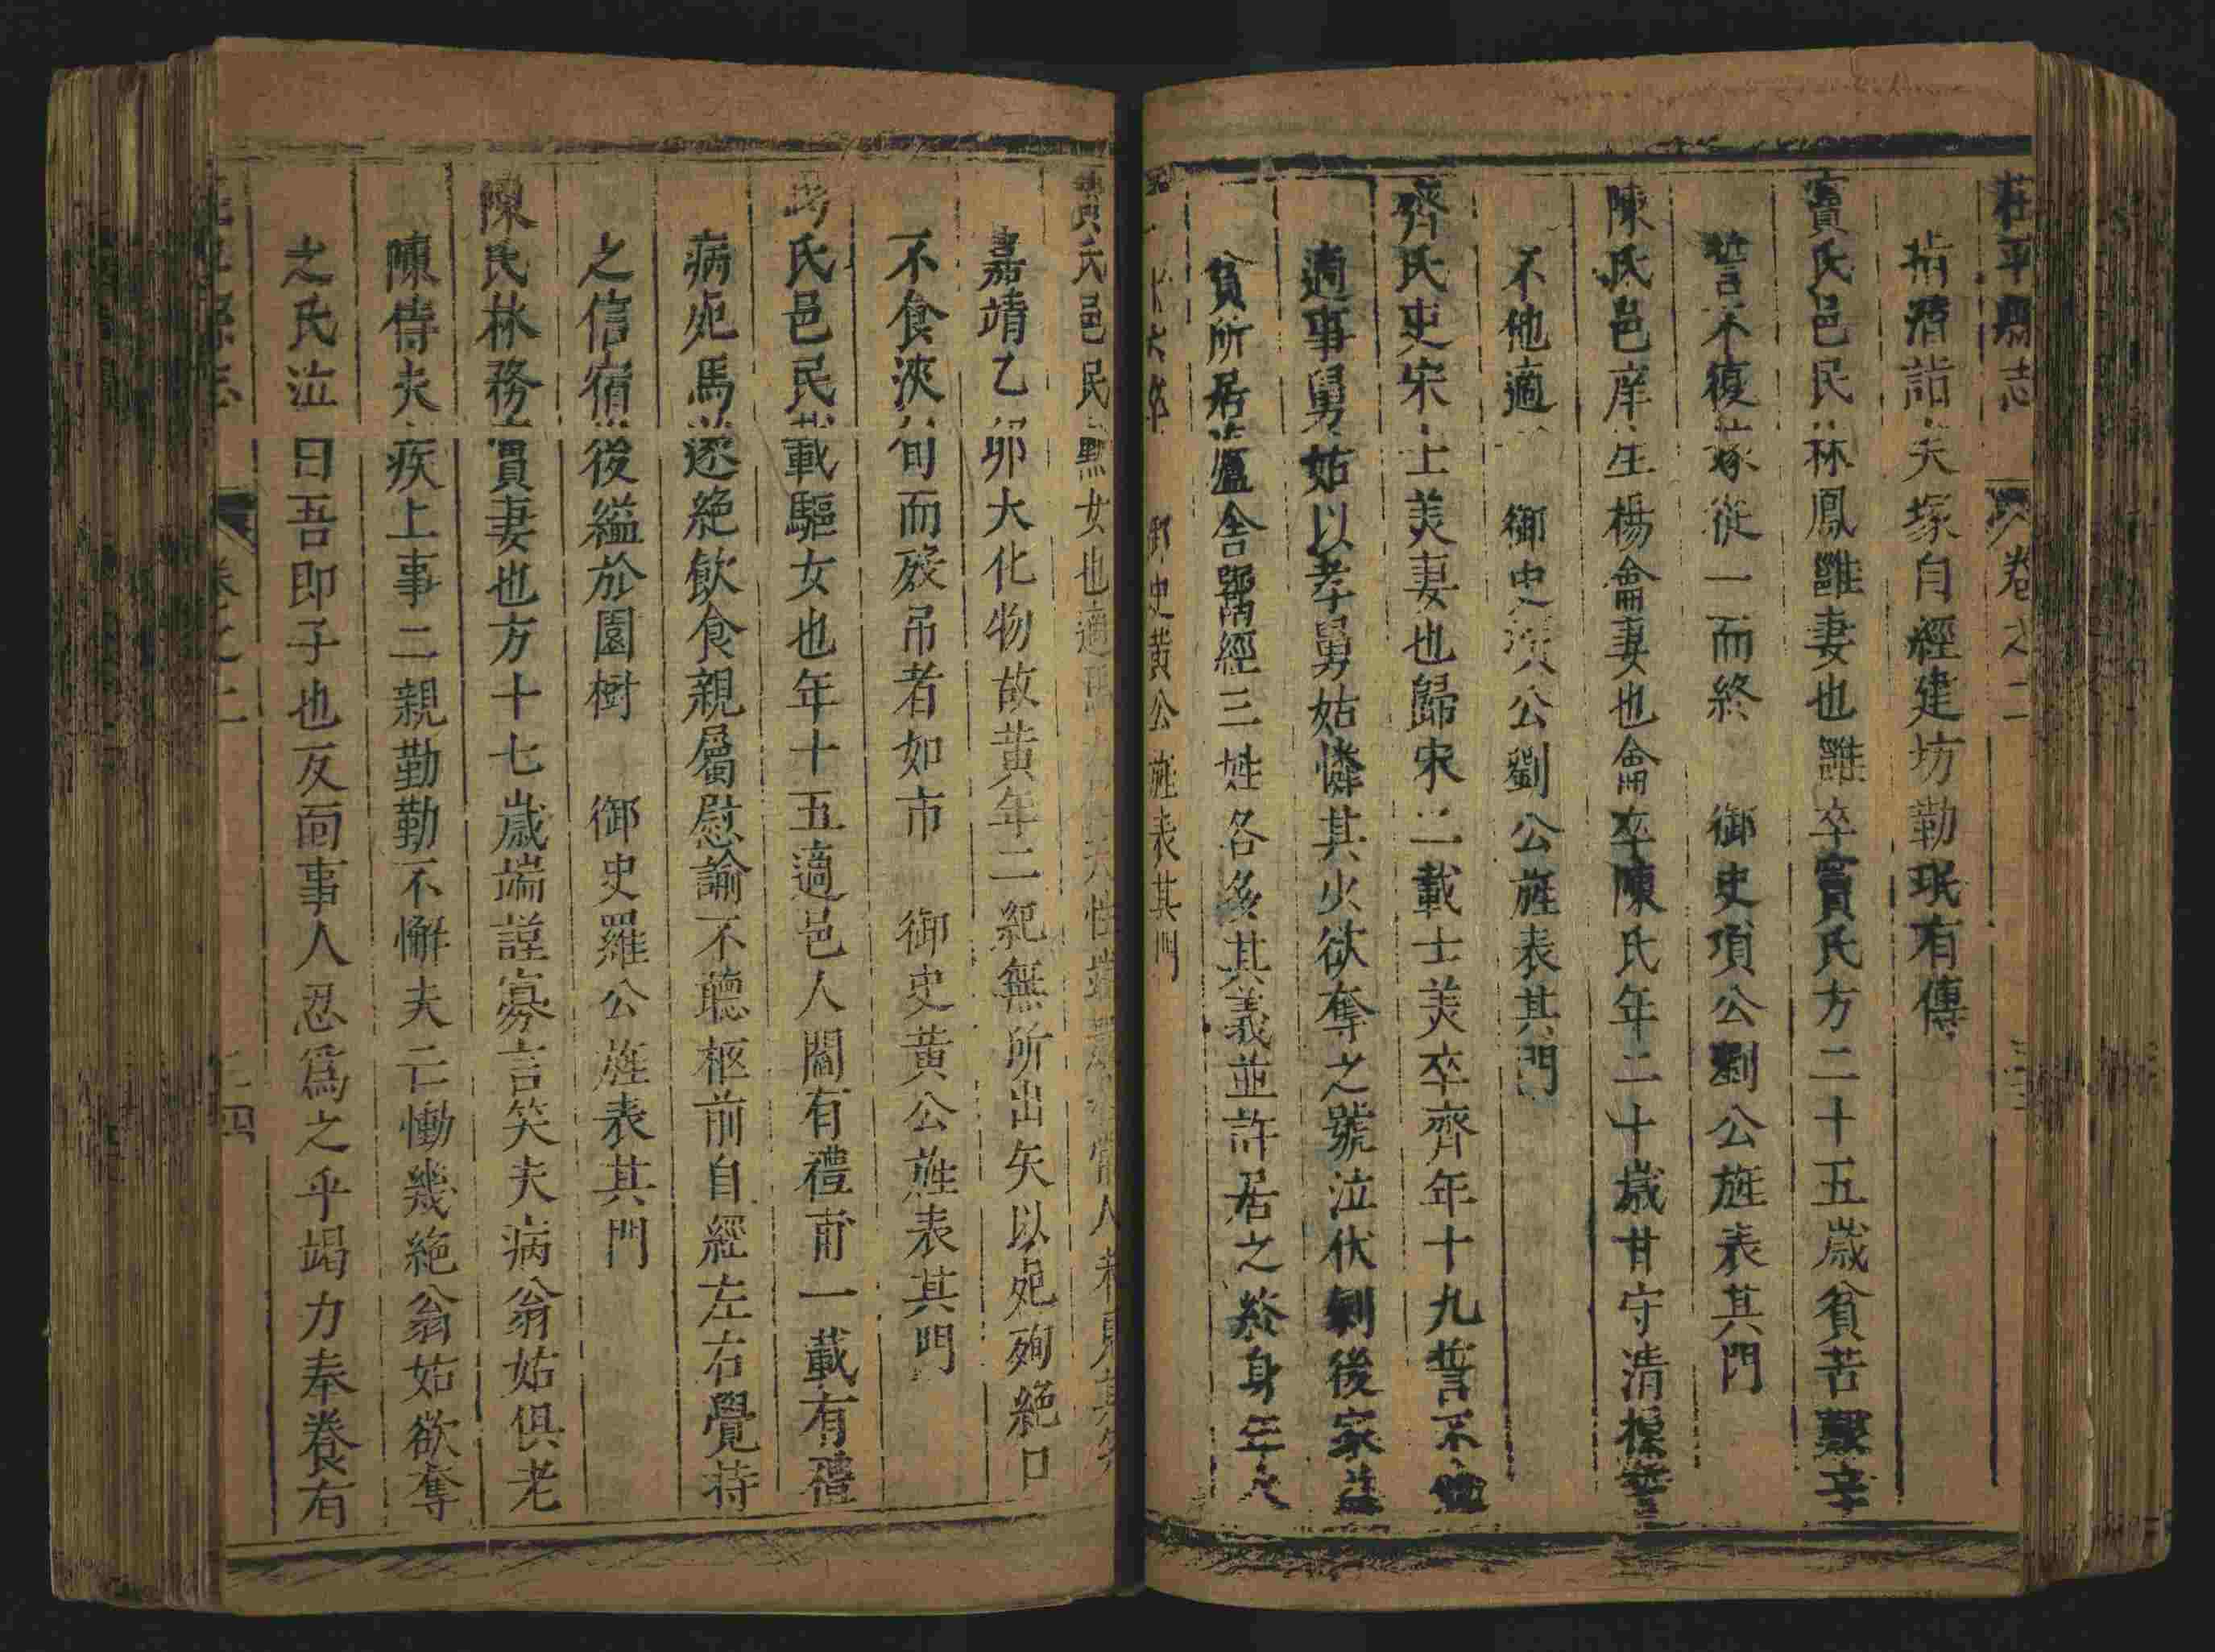 茌平縣志 卷之二
指猾詣夫塚自經建坊勒珉有傳
竇氏邑民林鳳雛妻也雛卒竇氏方二十五歲貧苦艱辛
誓不復嫁從一而終 御史項公劉公旌表其門
陳氏邑庠生楊侖妻也侖卒陳氏年二十歲甘守清操誓
不他適 御史 公劉公旌表其門
齊氏吏宋士美妻也歸宋二載士美卒齊年十九誓不他
適事舅姑以孝舅姑憐其少欲奪之號泣伏劍後家益
貧所居蘆舍鬻經三姓各多其義並許居之終身年
卒 御史黃公旌表其門
黃氏邑民勲女也適
嘉靖乙卯大化物故黃年二紀無所出矢以死殉絕口
不食浹旬而歿吊者如市 御史黃公旌表其門
馬氏邑民載驅女也年十五適邑人閻有禮甫一載有禮
病死馬遂絕飲食親屬慰諭不聽柩前自經左右覺持
之信宿後縊於園樹 御史羅公旌表其門
陳氏林務實妻也方十七歲端謹寡言笑夫病翁姑俱老
陳侍夫疾上事二親勤勤不懈夫亡慟幾絕翁姑欲奪
之氏泣曰吾即子也反面事人忍為之乎竭力奉養有
卷之二 二四